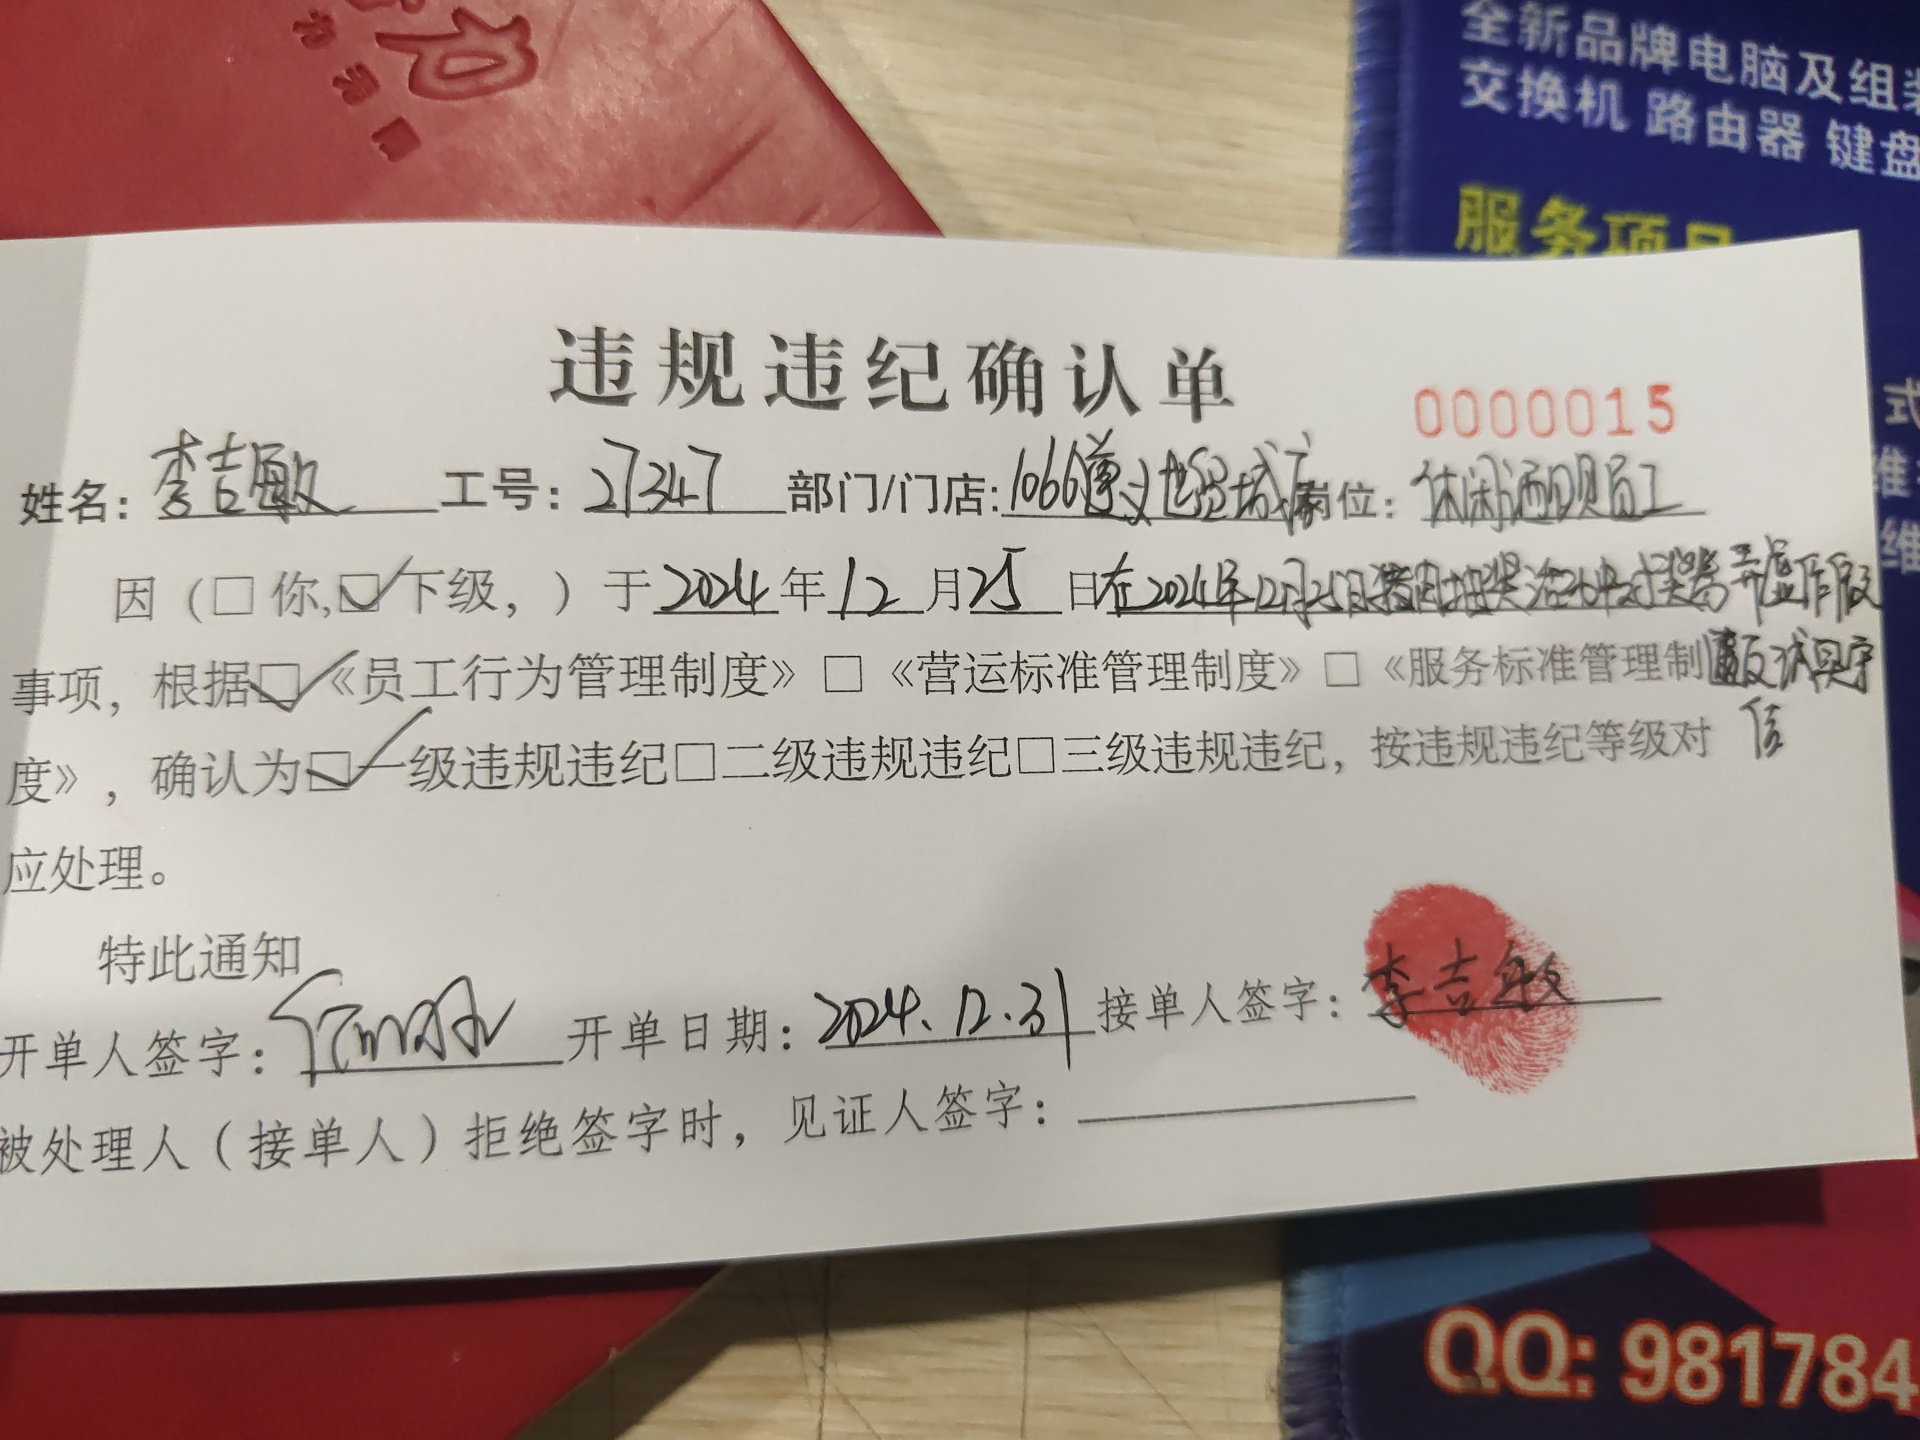 全新品牌电脑及组装
交换机 路由器 键盘
服务项目
式
维
维
违规违纪确认单
0000015
姓名：李吉敏 工号：27347 部门/门店：1066遵义世贸城店 岗位：休闲课员工
因（□你，☑下级，）于2024年12月25日在2024年12月25日 抽奖活动中对奖券弄虚作假
事项，根据☑《员工行为管理制度》□《营运标准管理制度》□《服务标准管理制 反诚实守
度》，确认为☑一级违规违纪□二级违规违纪□三级违规违纪，按违规违纪等级对 信
应处理。
特此通知
开单人签字： 开单日期：2024.12.31 接单人签字：李吉敏
被处理人（接单人）拒绝签字时，见证人签字：
QQ: 981784